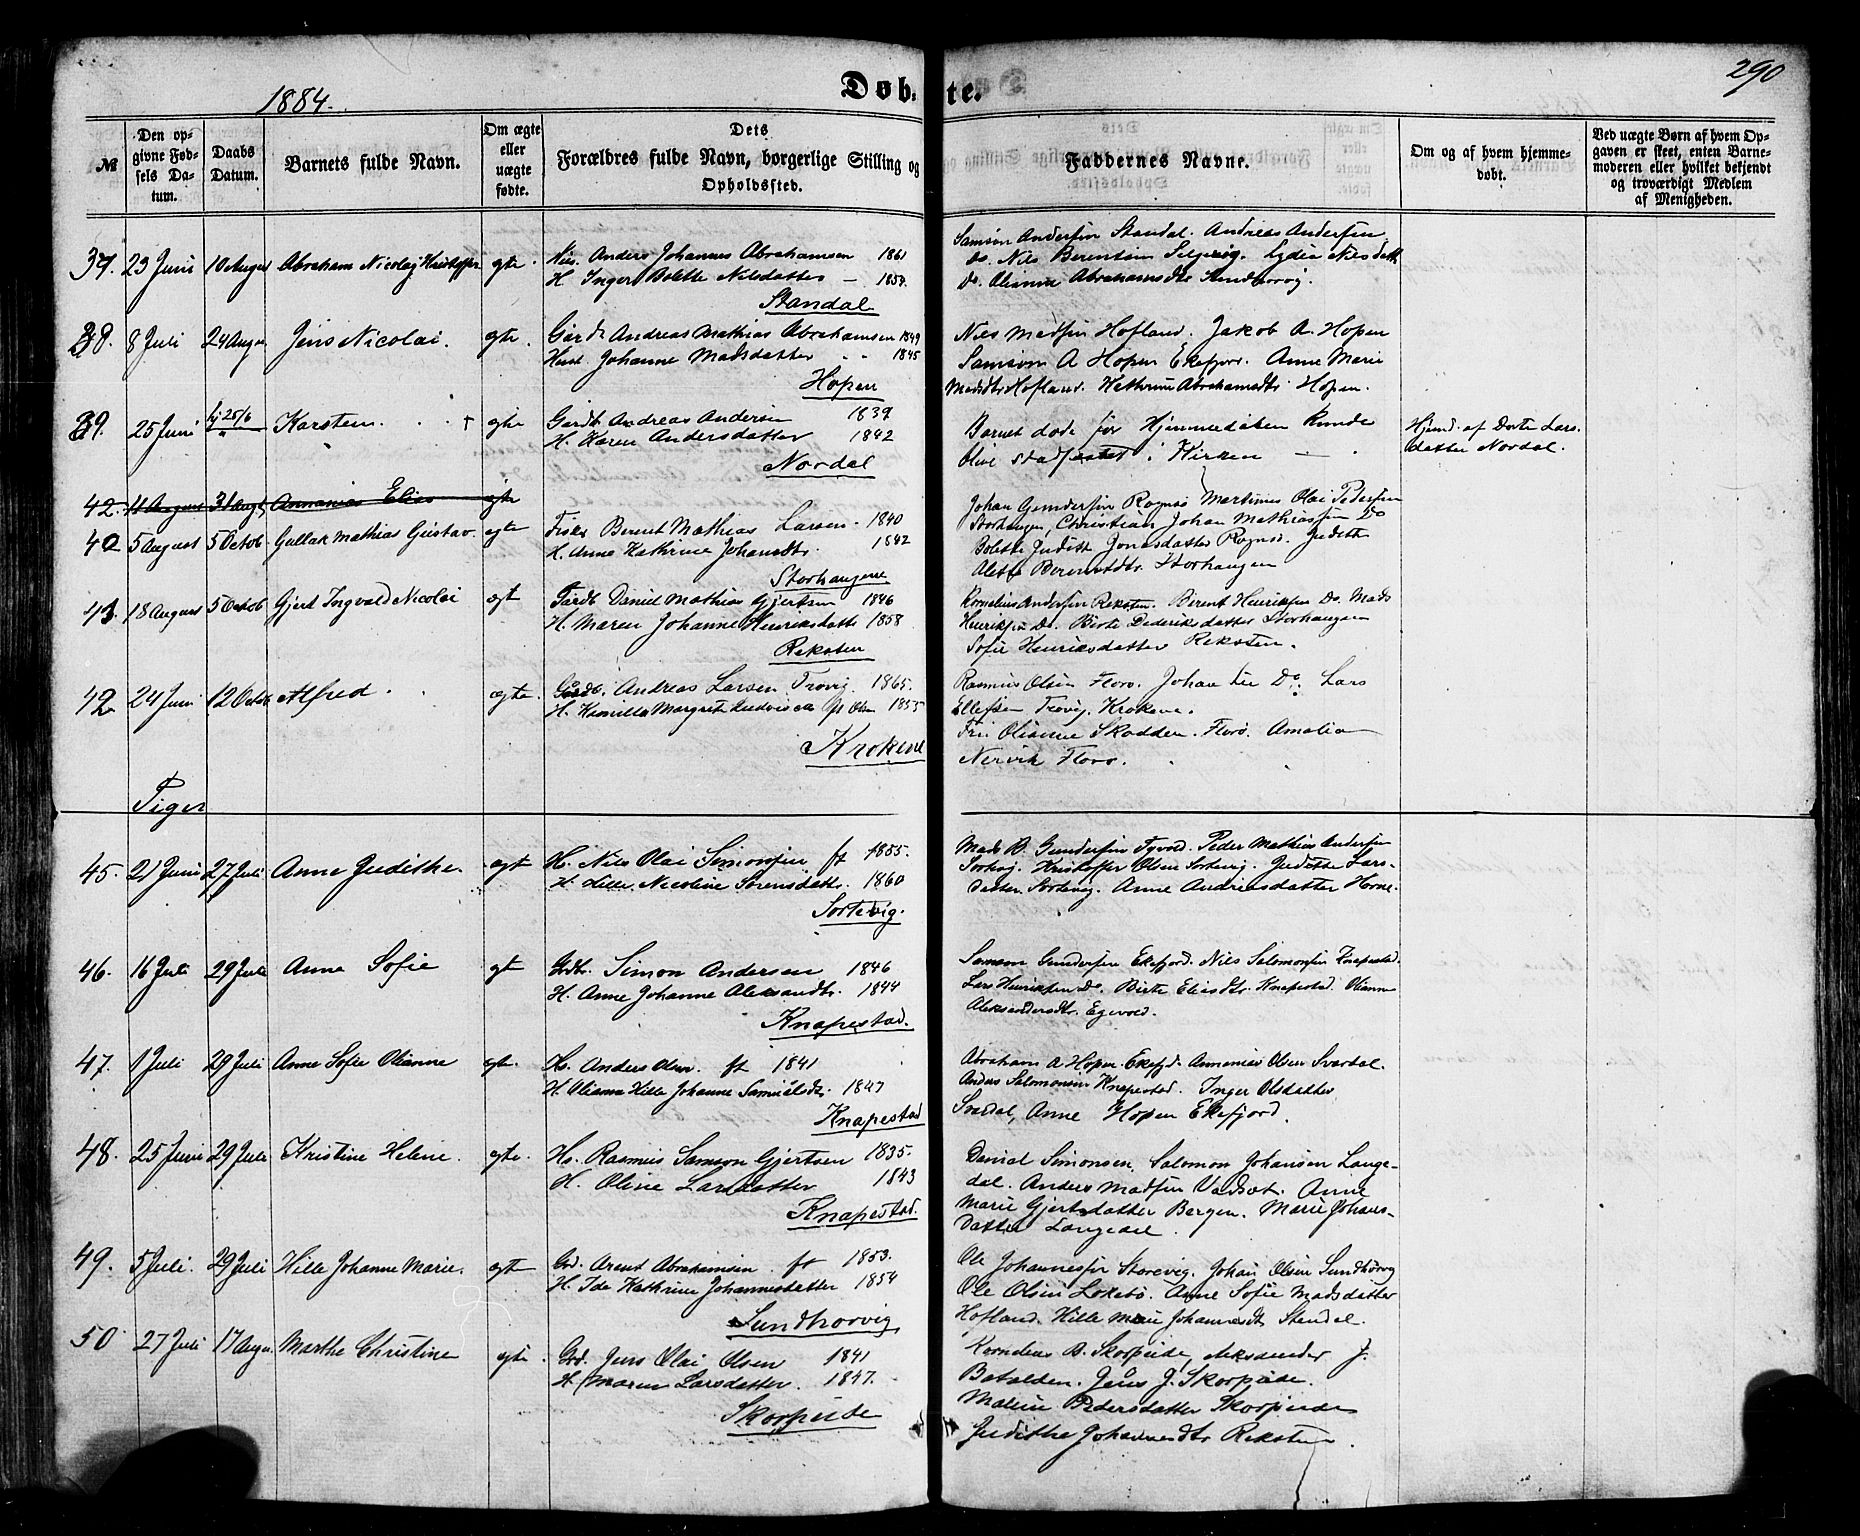 290
1884.
Døbte.
№
Den opgivne Fødsels Datum.
Daabs Datum.
Barnets fulde Navn.
Om ægte eller uægte fødte.
Dets Forældres fulde Navn, borgerlige Stilling og Opholdssted.
Faddernes Navne.
Om og af hvem hjemmedøbt.
Ved uægte Børn af hvem Opgaven er skeet, enten Barnemoderen eller hvilket bekjendt og troværdigt Medlem af Menigheden.
37. 23 Juni 10 August Abraham Nicolaj Kristoffer ægte. Anders Johannes Abrahamsen 1861
H. Inger Bolette Nilsdatter 1858
Standal
Samson Andersen Standal. Andreas Andersen
Do. Nils Berentsen Lydia Nilsdatt
Do. Olianna Abrahamsdtr
38. 8 Juli 24 Augu. Jens Nicolai. ægte. Gård. Andreas Mathias Abrahamsen 1849
Hust. Johanne Madsdatter 1845
Hopen
Nils Madsen Hofland. Jakob A. Hopen
Samson A Hopen Ekefjor. Anne Marie
Madsdtr Hofland. Kathrine Abrahamsdtr Hopen.
39. 25 Juni hj 25/6 Karsten. † ægte Gårdb Andreas Andersen 1839
H. Karen Andersdatter 1842
Nordal
Barnet døde før Hjemmedåben kunde
blive stadfæstet i Kirken
Hjemd. af Dorte Larsdatter Nordal.
42. 11 August 31 Augt Annanias Elias ægte
40 5 August 5 Octob Gullak Mathias Gustav. ægte Fisker Berent Mathias Larsen. 1840
H. Anne Kathrine Johansdtr. 1842
Storhaugene
Johan Gundersen Rognsø Martinus Olai Pedersen
Storhaugen, Christian Johan Mathiassen Do
Bolette Judith Jonasdatter Rognsø. Judith
Alette Berentsdtr. Storhaugen
41 18 August 5 Octob Gjert Ingvald Nicolai ægt Gårdb Daniel Mathias Gjertsen 1846
H. Maren Johanne Henriksdatte 1858
Reksten
Kornelius Andersen Reksten. Berent Henriksen Do. Mads
Henriksen Do. Birte Dideriksdatter Storhaugen
Sofie Henriksdatter Reksten.
42 24 Juni 12 Octob Alfred ægte. Gårdb. Andreas Larsen Trovig. 1865.
H. Kamilla Margrete 1855
Krokene
Rasmus Olsen Florø. Johan Do. Lars
Ellefsen Trovig. Krokene.
Fru Olianne Skadden. Florø. Amalia
Nervik Florø.
Piger
45. 21 Juni 27 Juli Anne Judithe. ægt Hs. Nils Olai Simonsen ft 1855.
H. Hille Nicoline Sørensdatr. 1860
Sortevig.
Mads B. Gundersen Peder Mathias Andersen
Kristoffer Olsen Sortevig. Judithe Larsdatter Sortevig. Anne Andreasdatter Horne.
46. 16 Juli 29 Juli Anne Sofie ægt Grdbr. Simon Andersen 1846
H. Anne Johanne Aleksandtr. 1844
Knapestad.
Samson Gundersen Ekefjord. Nils Salomonsen Knapestad.
Lars Henriksen Do. Birte Eliasdtr. Knapestad. Olianne
Aleksandersdtr. Egevold.
47. 1 Juli 29 Juli Anne Sofie Olianne ægte. Hs. Anders Olsen. ft 1841
H. Olianna Hille Johanne Samuelsdr 1847
Knapestad
Abraham A Hopen. Ekefjd. Annanias Olsen Svardal.
Anders Salomonsen Knapestad. Inger Olsdatter
Svardal, Anne Hopen Ekefjord.
48. 25 Juni 29 Juli Kristine Helene. ægte. Hs. Rasmus Samson Gjertsen 1835.
H. Oline Larsdatter 1843
Knapestad
Daniel Simonsen, Salomon Johansen Langedal. Anders Madsen Vadset. Anne
Marie Gjertsdatter Bergen. Marie Johansdatter Langedal.
49. 5 Juli. 29 Juli Hille Johanne Marie. ægte Grd. Arent Abrahamsen. ft 1853.
H. Ida Kathrine Johannesdatter 1854
Sundhorvig
Ole Johannessen Storevig. Johan Olsen Sundhorvig
Ole Olsen Løkebø. Anne Sofie Madsdatter
Hofland. Hille Marie Johannesdtr Standal.
50 27 Juli 17 Augu. Marthe Christine ægte. Grd. Jens Olai Olsen 1841
H. Maren Larsdatter. 1847.
Skorpeide
Kornelius B. Skorpeide, Aleksander J.
Batalden. Jens J. Skorpeide.
Malene Pedersdatter Skorpeide
Judithe Johannesdtr Reksten.